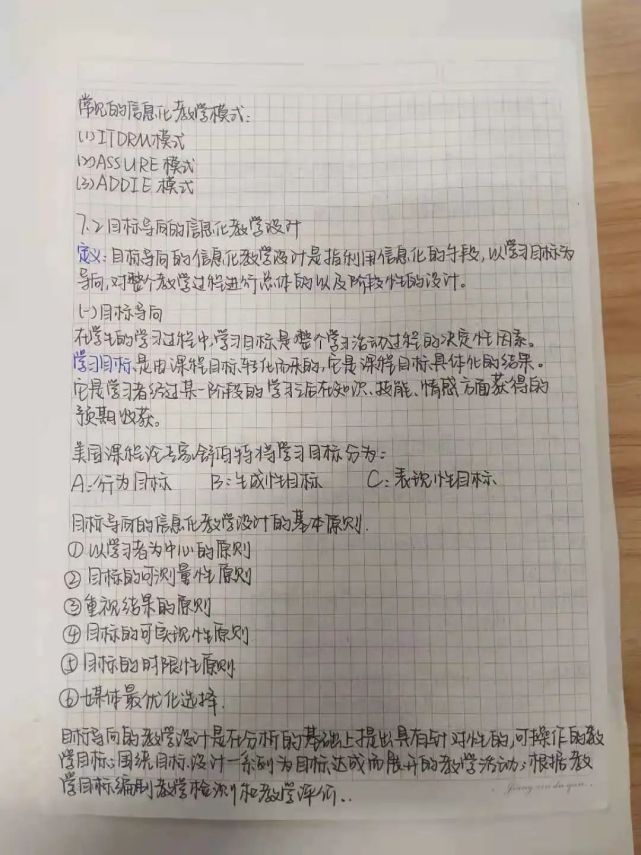 常见的信息化教学模式:
(1)ITDRM模式
(2)ASSURE模式
(3)ADDIE 模式
7.2目标导向的信息化教学设计
定义:目标导向的信息化教学设计是指利用信息化的手段,以学习目标为
导向,对整个教学过程进行总体的以及阶段性的设计。
(一)目标导向
在学生的学习过程中,学习目标是整个学习活动过程的决定性因素。
学习目标是由课程目标转化而来的,它是课程目标具体化的结果。
它是学习者经过某一阶段的学习之后在知识、技能、情感方面获得的
预期收获。
美国课程论专家舒伯特将学习目标分为:
A:行为目标 B:生成性目标 C:表现性目标
目标导向的信息化教学设计的基本原则.
①以学习者为中心的原则
②目标的可测量性原则
③重视结果的原则
④目标的可实现性原则
⑤目标的时限性原则
⑥媒体最优化选择.
目标导向的教学设计是在分析的基础上提出具有针对性的,可操作的教
学目标;围绕目标设计一系列为目标达成而展开的教学活动;根据教
学目标编制教学检测和教学评价..